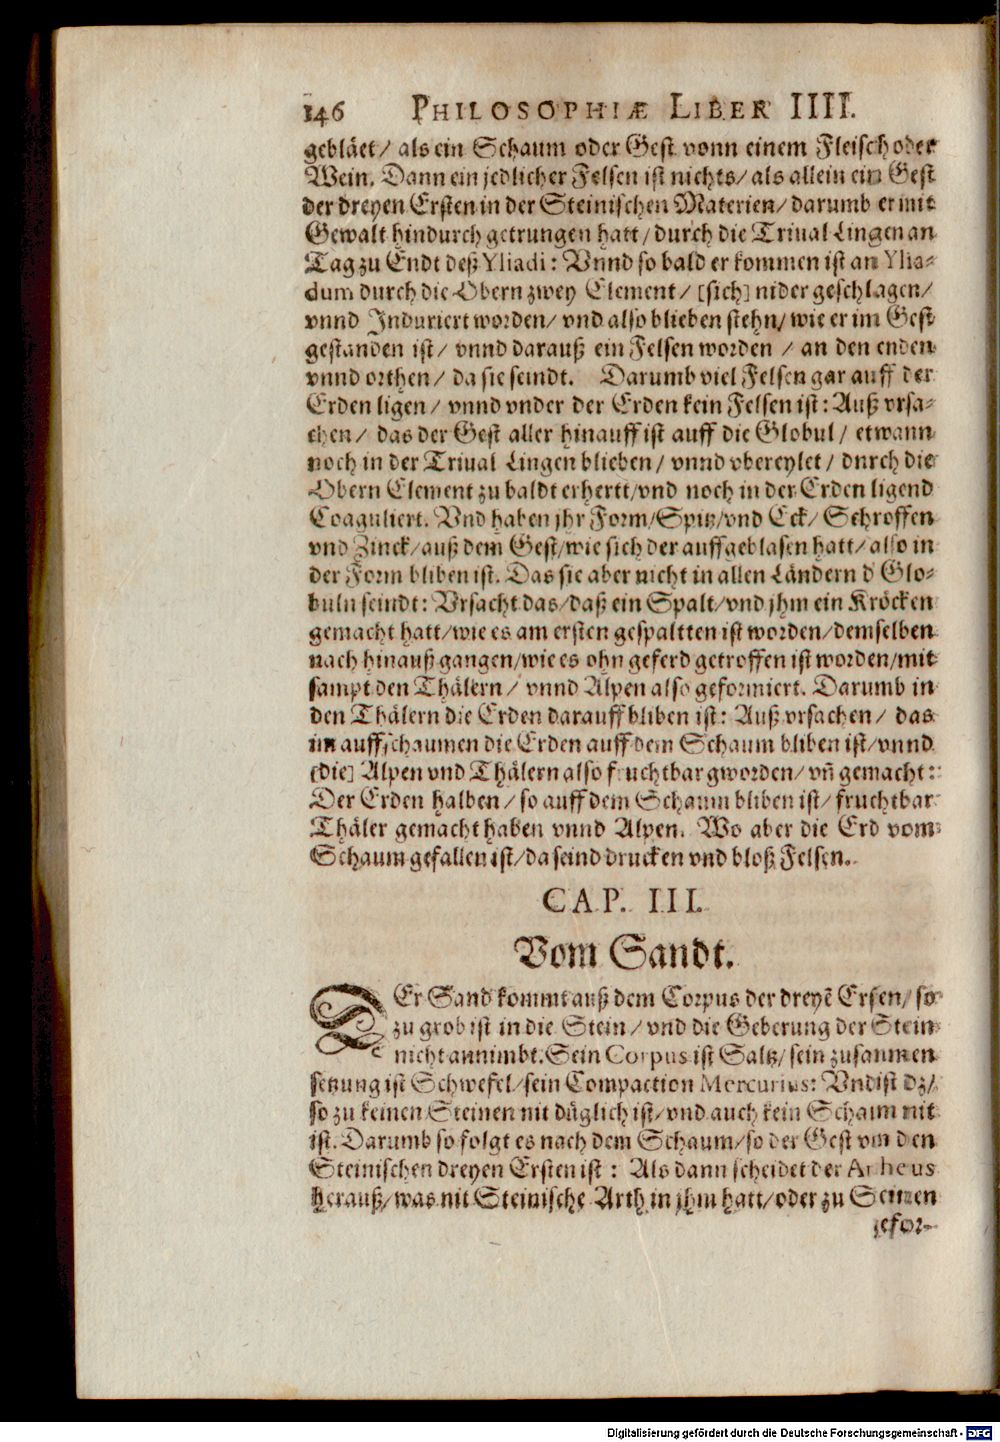 146 PHILOSOPHIÆ LIBER IIII.
gebläet/ als ein Schaum oder Gest vonn einem Fleisch oder
Wein. Dann ein jedlicher Felsen ist nichts/ als allein ein Gest
der dreyen Ersten in der Steinischen Materien/ darumb er mit
Gewalt hindurch getrungen hatt/ durch die Triual Lingen an
Tag zu Endt deß Yliadi: Vnnd so bald er kommen ist an Ylia-
dum durch die Obern zwey Element/ [sich] nider geschlagen/
vnnd Induriert worden/ vnd also blieben stehn/ wie er im Gest
gestanden ist/ vnnd darauß ein Felsen worden / an den enden
vnnd orthen/ da sie seindt. Darumb viel Felsen gar auff der
Erden ligen/ vnnd vnder der Erden kein Felsen ist: Auß vrsa-
chen/ das der Gest aller hinauff ist auff die Globul/ etwann
noch in der Triual Lingen blieben/ vnnd vbereylet/ durch die
Obern Element zu baldt erhertt/ vnd noch in der Erden ligend
Coaguliert. Vnd haben jhr Form/ Spitz/ vnd Eck/ Schroffen
vnd Zinck/ auß dem Gest/ wie sich der auffgeblasen hatt/ also in
der Form bliben ist. Das sie aber nicht in allen Ländern d Glo-
buln seindt: Vrsacht das/ daß ein Spalt/ vnd jhm ein Kröcken
gemacht hatt/ wie es am ersten gespaltten ist worden/ demselben
nach hinauß gangen/ wie es ohn geferd getroffen ist worden/ mit
sampt den Thälern/ vnnd Alpen also geformiert. Darumb in
den Thälern die Erden darauff bliben ist: Auß vrsachen/ das
im auffschaumen die Erden auff dem Schaum bliben ist/ vnnd
[die] Alpen vnd Thälern also fruchtbar gworden/ vñ gemacht:
Der Erden halben/ so auff dem Schaum bliben ist/ fruchtbar
Thäler gemacht haben vnnd Alpen. Wo aber die Erd vom
Schaum gefallen ist/ da seind drucken vnd bloß Felsen.
CAP. III.
Vom Sandt.
DEr Sand kommt auß dem Corpus der dreyē Ersen/ so
zu grob ist in die Stein/ vnd die Geberung der Stein
nicht annimbt. Sein Corpus ist Saltz/ sein zusammen
setzung ist Schwefel/ sein Compaction Mercurius: Vnd ist dz/
so zu keinen Steinen nit düglich ist/ vnd auch kein Schaum nit
ist. Darumb so folgt es nach dem Schaum/ so der Gest von den
Steinischen dreyen Ersten ist : Als dann scheidet der Archeus
herauß/ was nit Steinische Arth in jhm hatt/ oder zu Steinen
gefor-
Digitalisierung gefördert durch die Deutsche Forschungsgemeinschaft - DFG